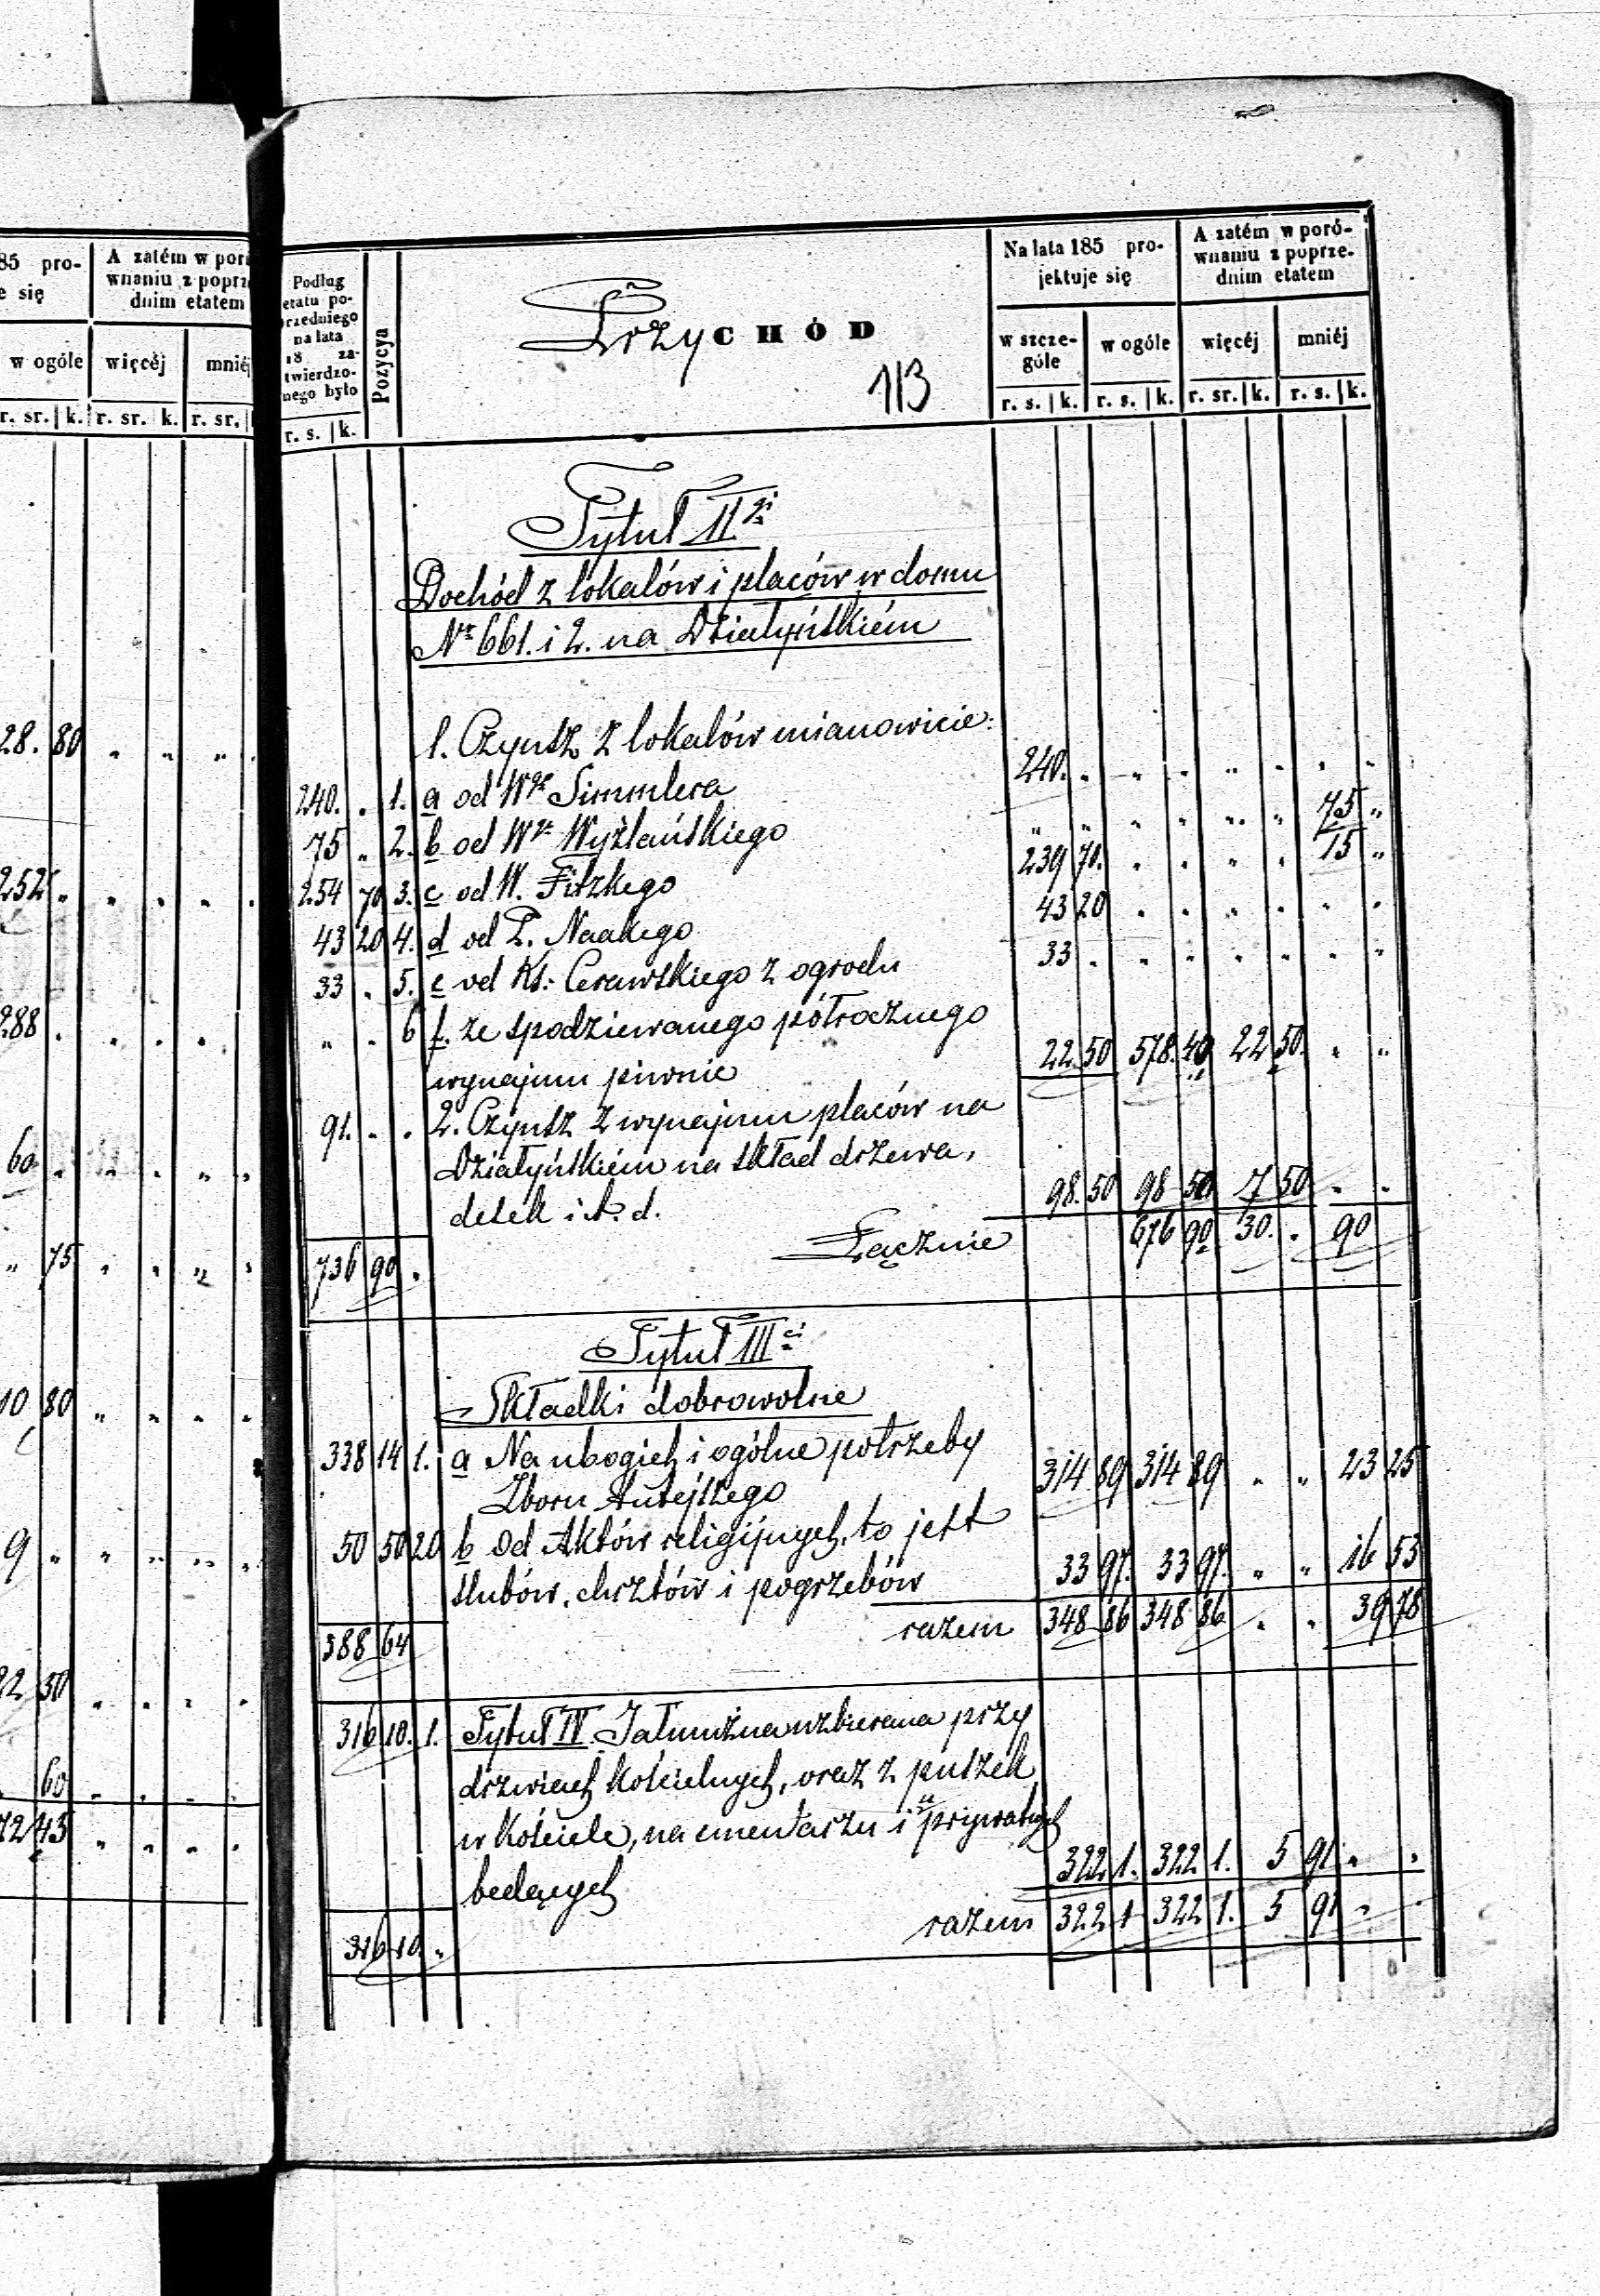 85 pro-
e się
A zatém w poró
wnaniu z poprze
dnim etatem
w ogóle więcéj mniéj
r. sr. k. r. sr. k. r. sr.
28. 80 " " " .
252 " " . " .
288 . . . .
60 " " " " "
" 75 " . " .
10 80 " . . .
9 " " " " .
22 50 " . . .
60 " . . .
72 43 " " " .
Podług
etatu po-
przedniego
na lata
18 za-
twierdzo-
nego było
r. s. k.
Pozycya
Przychód
113
Na lata 185 pro-
jektuje się
w szcze-
góle
w ogóle
r. s. k. r. s. k.
A zatém w poró-
wnaniu z poprze-
dnim etatem
więcéj mniéj
r. sr. k. r. s. k.
Tytuł II gi
Dochód z lokalów i placów w domu
Nr 661. i 2. na Działyńskiém
1. Czynsz z lokalów mianowicie:
240. . 1. a od Wgo Simmlera 240. . " . " . . .
75 " 2. b od Wgo Wyżlańskiego " " . . " . 75 "
254 70 3. c od W. Fitzkego 239 70. . . " . 15 "
43 20 4. d od P. Naakego 43 20 . . . . . .
33 . 5. e od Ks: Cerawskiego z ogrodu 33 . . . . . . .
" . 6 f. ze spodziewanego półrocznego
wynajmu piwnic 22 50 578. 40 22 50. . "
91. . . 2. Czynsz z wynajmu placów na
Działyńskiém na skład drzewa,
desek i t. d. 98. 50 98 50 7 50 . .
736 90 . Łącznie 676 90 30. . 90
Tytuł III ci
Składki dobrowolne
338 14 1. a Na ubogich i ogólne potrzeby
Zboru tutejszego 314 89 314 89 . " 23 25
50 50 20 b Od Aktów religijnych, to jest
ślubów, chrztów i pogrzebów 33 97. 33 97. " " 16 53
388 64 razem 348 86 348 86 . . 39 78
316 10. 1. Tytuł IV. Jałmużna uzbierana przy
drzwiach kościelnych, oraz z puszek
w Kościele, na cmentarzu i prywatnych
będących 322 1. 322 1. 5 91 " .
316 10 . razem 322 1 322 1. 5 91 . .